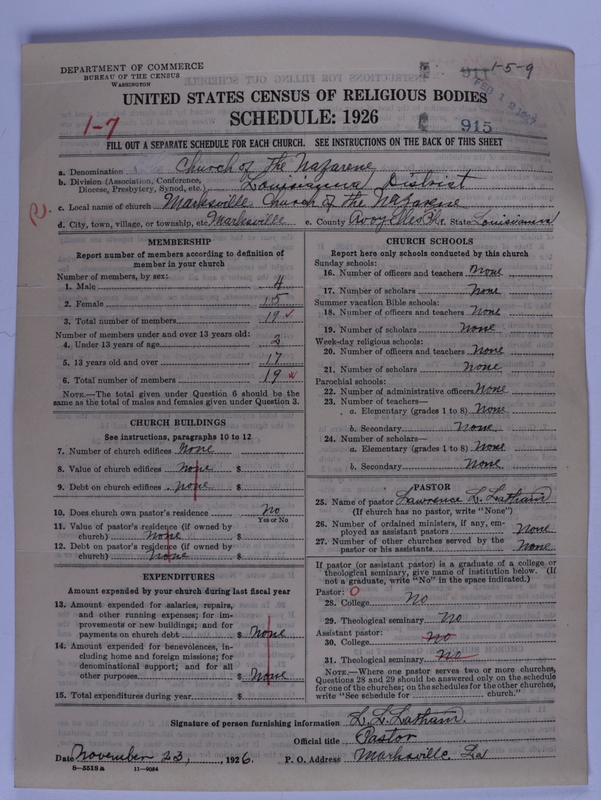 DEPARTMENT OF COMMERCE
BUREAU OF THE CENSUS
WASHINGTON
911 1-5-9
UNITED STATES CENSUS OF RELIGIOUS BODIES
SCHEDULE: 1926
1-7
915
FILL OUT A SEPARATE SCHEDULE FOR EACH CHURCH. SEE INSTRUCTIONS ON THE BACK OF THIS SHEET
a. Denomination Church of the Nazarene
b. Division (Association, Conference, Diocese, Presbytery, Synod, etc.) Louisianna District
c. Local name of church Marksville Church of the Nazarene
d. City, town, village, or township, etc. Marksville e. County Avoyelles f. State Louisianna
MEMBERSHIP
Report number of members according to definition of
member in your church
Number of members, by sex:
1. Male 4
2. Female 15
3. Total number of members 19
Number of members under and over 13 years old:
4. Under 13 years of age 2
5. 13 years old and over 17
6. Total number of members 19
NOTE.—The total given under Question 6 should be the
same as the total of males and females given under Question 3.
CHURCH BUILDINGS
See instructions, paragraphs 10 to 12
7. Number of church edifices None
8. Value of church edifices None $
9. Debt on church edifices none $
10. Does church own pastor's residence No
Yes or No
11. Value of pastor's residence (if owned by
church) None $
12. Debt on pastor's residence (if owned by
church) None $
EXPENDITURES
Amount expended by your church during last fiscal year
13. Amount expended for salaries, repairs,
and other running expenses; for im-
provements or new buildings; and for
payments on church debt $ None
14. Amount expended for benevolences, in-
cluding home and foreign missions; for
denominational support; and for all
other purposes $ None
15. Total expenditures during year $
CHURCH SCHOOLS
Report here only schools conducted by this church
Sunday schools:
16. Number of officers and teachers None
17. Number of scholars None
Summer vacation Bible schools:
18. Number of officers and teachers None
19. Number of scholars None
Week-day religious schools:
20. Number of officers and teachers None
21. Number of scholars None
Parochial schools:
22. Number of administrative officers None
23. Number of teachers—
a. Elementary (grades 1 to 8) None
b. Secondary None
24. Number of scholars—
a. Elementary (grades 1 to 8) None
b. Secondary None
PASTOR
25. Name of pastor Lawrence L. Latham
(If church has no pastor, write "None")
26. Number of ordained ministers, if any, em-
ployed as assistant pastors None
27. Number of other churches served by the
pastor or his assistants None
If pastor (or assistant pastor) is a graduate of a college or
theological seminary, give name of institution below. (If
not a graduate, write "No" in the space indicated.)
Pastor: O
28. College No
29. Theological seminary No
Assistant pastor:
30. College No
31. Theological seminary No
NOTE.—Where one pastor serves two or more churches,
Questions 28 and 29 should be answered only on the schedule
for one of the churches; on the schedules for the other churches,
write "See schedule for church."
Signature of person furnishing information L. L. Latham
Official title Pastor
Date November 23, 1926. P. O. Address Marksville La
8—5518a 11—9084